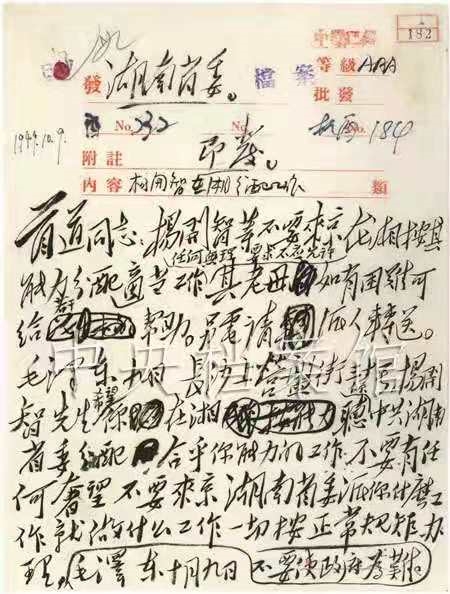 182
檔案
等級AAA
發 湖南省委。
批發
No. 232
No.
No. 184
1949.10.9.
附註 即發。
內容 楊開智在湘分配工作 類
首道同志:楊開智等不要來京,在湘按其
能力分配適當工作,任何無理要求不應允許。其老母如有困難可
給若干幫助。另電請派人轉送。
毛澤東 九日 長沙 楊開
智先生:希望你在湘聽候中共湖南
省委分配合乎你能力的工作,不要有任
何奢望,不要來京。湖南省委派你什麼工
作就做什么工作,一切按正常規矩办
理,毛澤東 十月九日 不要使政府為難。
中央档案馆